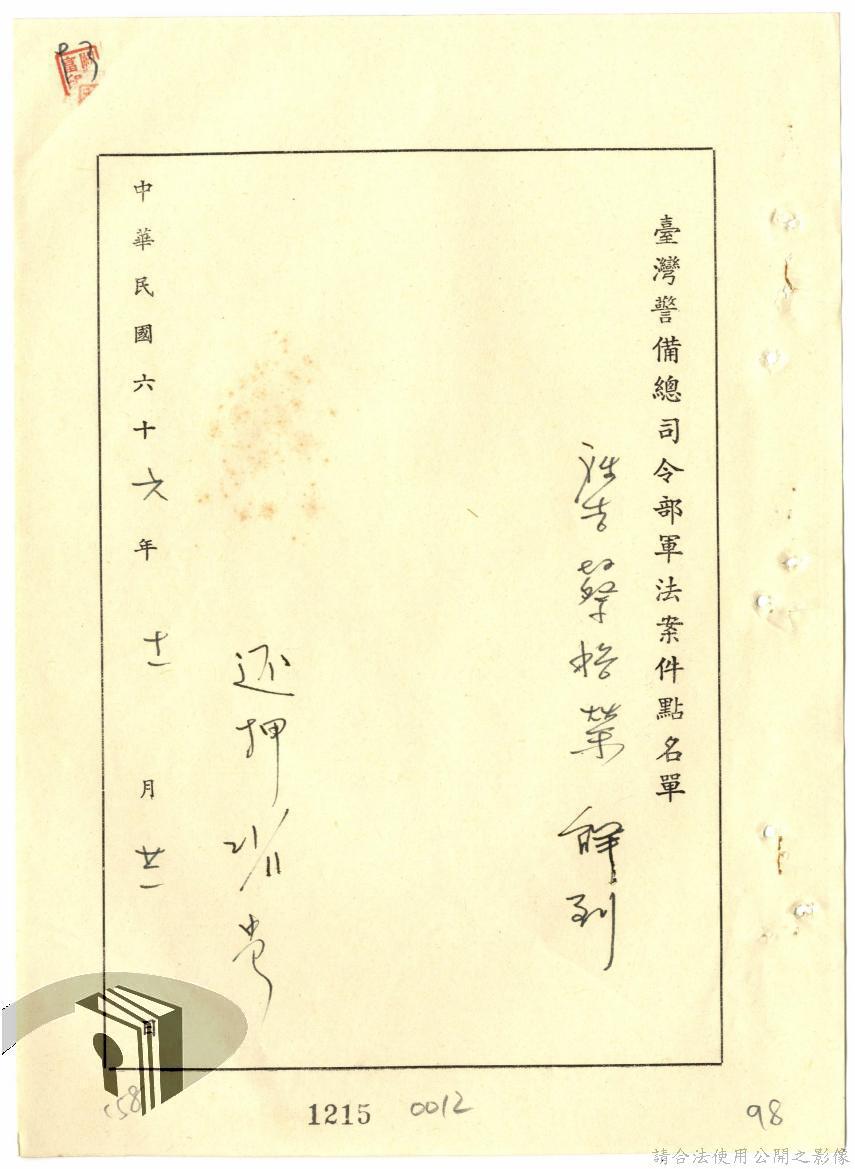 臺灣警備總司令部軍法案件點名單
被告 蔡 榮 解到
還押 21/11
中華民國六十六年十一月廿一日
158
1215
0012
98
請合法使用公開之影像